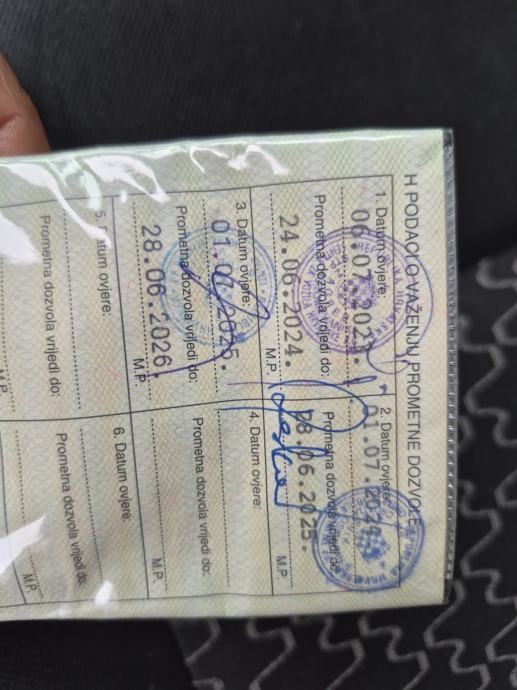 H PODACI O VAŽENJU PROMETNE DOZVOLE
1. Datum ovjere:
06.07.202
Prometna dozvola vrijedi do:
24.06.2024.
M.P.
2. Datum ovjere:
01.07.202
Prometna dozvola vrijedi do:
28.06.2025.
M.P.
3. Datum ovjere:
01.07.2025.
Prometna dozvola vrijedi do:
28.06.2026.
M.P.
4. Datum ovjere:
Prometna dozvola vrijedi do:
M.P.
5. Datum ovjere:
Prometna dozvola vrijedi do:
M.P.
6. Datum ovjere:
Prometna dozvola vrijedi do:
M.P.